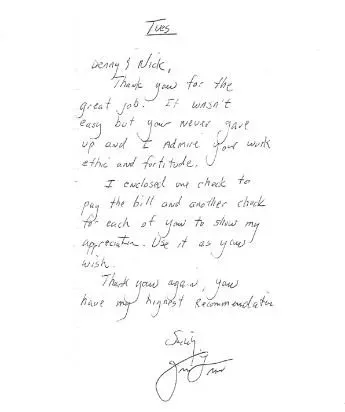 Tues
Denny & Nick,
Thank you for the
great job. It wasn't
easy but your never gave
up and I Admire your work
ethic and fortitude.
I enclosed one check to
pay the bill and another check
for each of you to show my
appreciation. Use it as you
wish.
Thank you again, you
have my highest recommendation